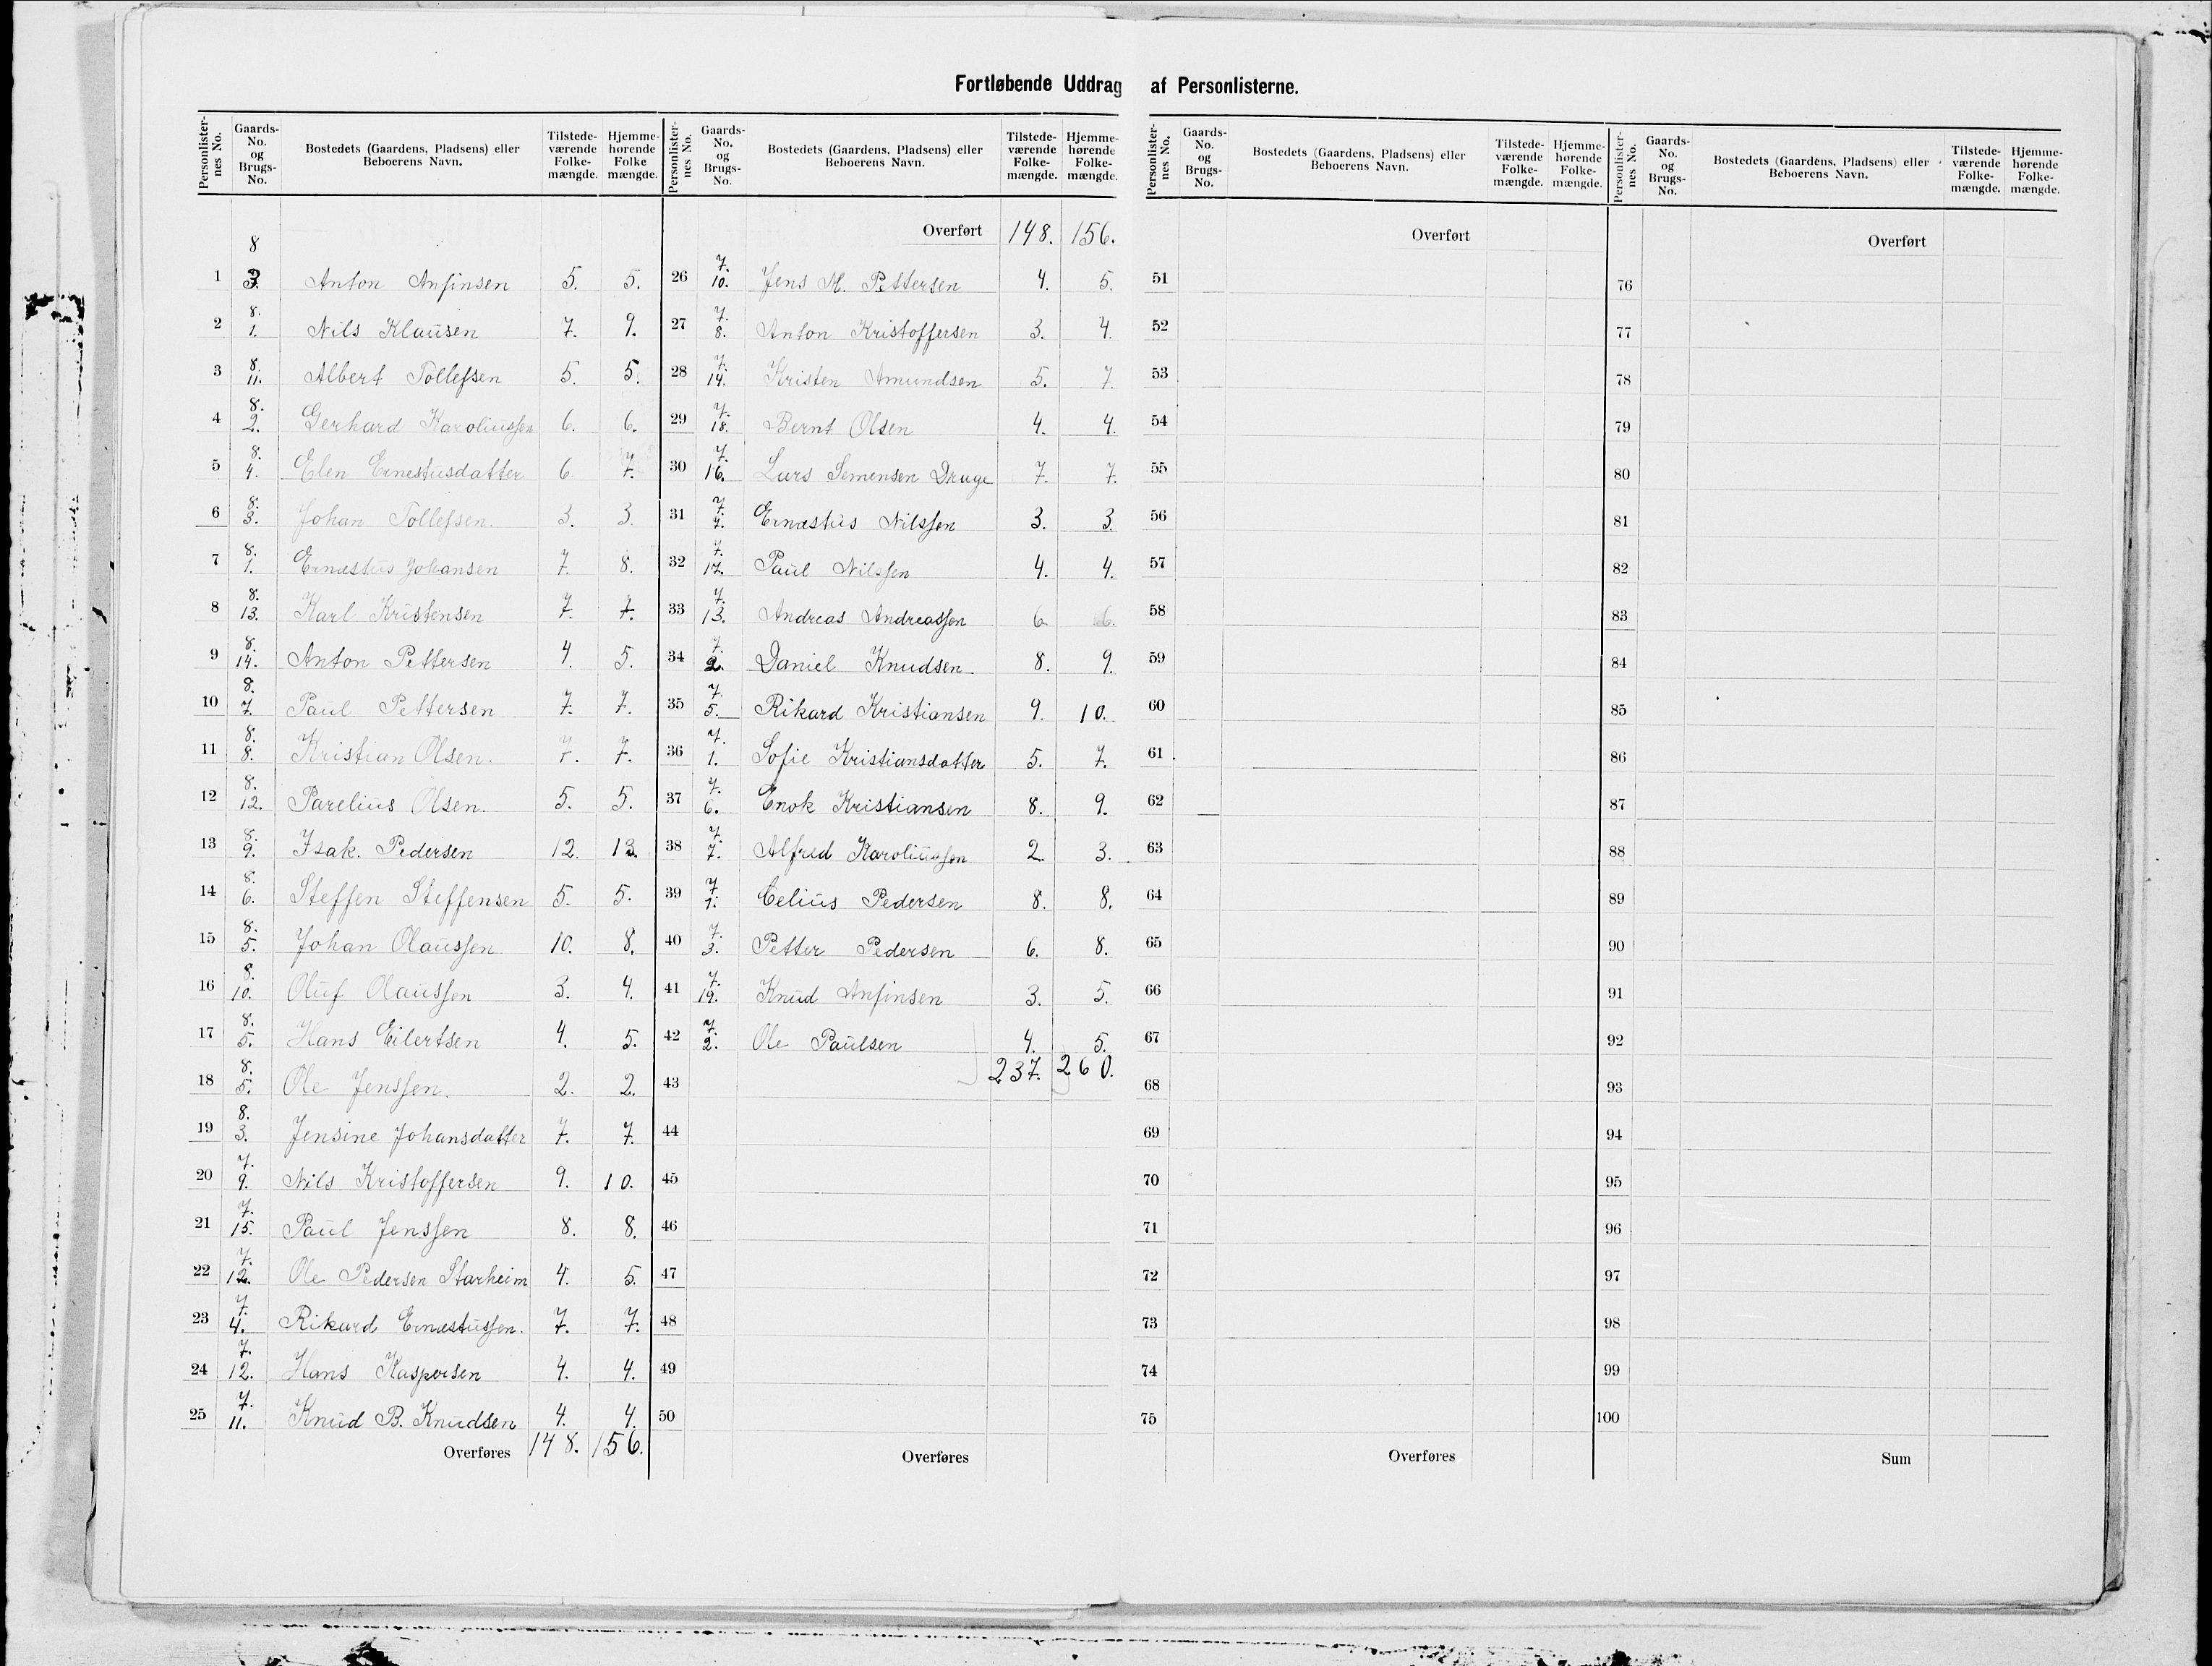 Fortløbende Uddrag af Personlisterne.
Personlister- nes No. Gaards- No. og Brugs- No. Bostedets (Gaardens, Pladsens) eller Beboerens Navn. Tilstede- værende Folke- mængde. Hjemme- hørende Folke mængde.
8 3. 1 Anton Anfinsen 5. 5.
2 8. 1. Nils Klausen 7. 9.
3 8. 11. Albert Tollefsen 5. 5.
4 8. 2. Gerhard Karoliussen 6. 6.
5 8. 4. Elen Ernestusdatter 6. 7.
6 8. 3. Johan Tollefsen. 3. 3.
7 8. 1. Ernæstus Johansen 7. 8.
8 8. 13. Karl Kristensen 7. 7.
9 8. 14. Anton Pettersen 4. 5.
10 8. 7. Paul Pettersen 7. 7.
11 8. 8. Kristian Olsen. 7. 7.
12 8. 12. Parelius Olsen. 5. 5.
13 8. 9. Isak. Pedersen 12. 13.
14 8. 6. Steffen Steffensen 5. 5.
15 8. 5. Johan Olaussen 10. 8.
16 8. 10. Oluf Olaussen 3. 4.
17 8. 5. Hans Eilertsen 4. 5.
18 8. 5. Ole Jenssen. 2. 2.
19 8. 3. Jensine Johansdatter 7. 7.
20 7. 9. Nils Kristoffersen 9. 10.
21 7. 15. Paul Jenssen 8. 8.
22 7. 12. Ole Pedersen Starheim 4. 5.
23 7. 4. Rikard Ernæstussen. 7. 7.
24 7. 12. Hans Kaspersen 4. 4.
25 7. 11. Knud B. Knudsen 4. 4.
Overføres 148. 156.
Personlister- nes No. Gaards- No. og Brugs- No. Bostedets (Gaardens, Pladsens) eller Beboerens Navn. Tilstede- værende Folke- mængde. Hjemme- hørende Folke- mængde.
Overført 148. 156.
26 7. 10. Jens M. Pettersen 4. 5.
27 7. 8. Anton Kristoffersen 3. 4.
28 7. 14. Kristen Amundsen 5. 7.
29 7. 18. Bernt Olsen 4. 4.
30 7. 16. Lars Semensen Drage 7. 7.
31 7. 7. Ernæstus Nilssen 3. 3.
32 7. 17. Paul Nilssen 4. 4.
33 7. 13. Andreas Andreassen 6. 6.
34 7. 2. Daniel Knudsen 8. 9.
35 7. 5. Rikard Kristiansen 9. 10.
36 7. 1. Sofie Kristiansdatter 5. 7.
37 7. 6. Enok Kristiansen 8. 9.
38 7. 7. Alfred Karoliussen 2. 3.
39 7. 1. Celius Pedersen 8. 8.
40 7. 3. Petter Pedersen 6. 8.
41 7. 19. Knud Anfinsen 3. 5.
42 7. 2. Ole Paulsen 4. 5.
43 237. 260.
44
45
46
47
48
49
50
Overføres
Personlister- nes No. Gaards- No. og Brugs- No. Bostedets (Gaardens, Pladsens) eller Beboerens Navn. Tilstede- værende Folke- mængde. Hjemme- hørende Folke- mængde.
Overført
51
52
53
54
55
56
57
58
59
60
61
62
63
64
65
66
67
68
69
70
71
72
73
74
75
Overføres
Personlister- nes No. Gaards- No. og Brugs- No. Bostedets (Gaardens, Pladsens) eller Beboerens Navn. Tilstede- værende Folke- mængde. Hjemme- hørende Folke- mængde.
Overført
76
77
78
79
80
81
82
83
84
85
86
87
88
89
90
91
92
93
94
95
96
97
98
99
100
Sum